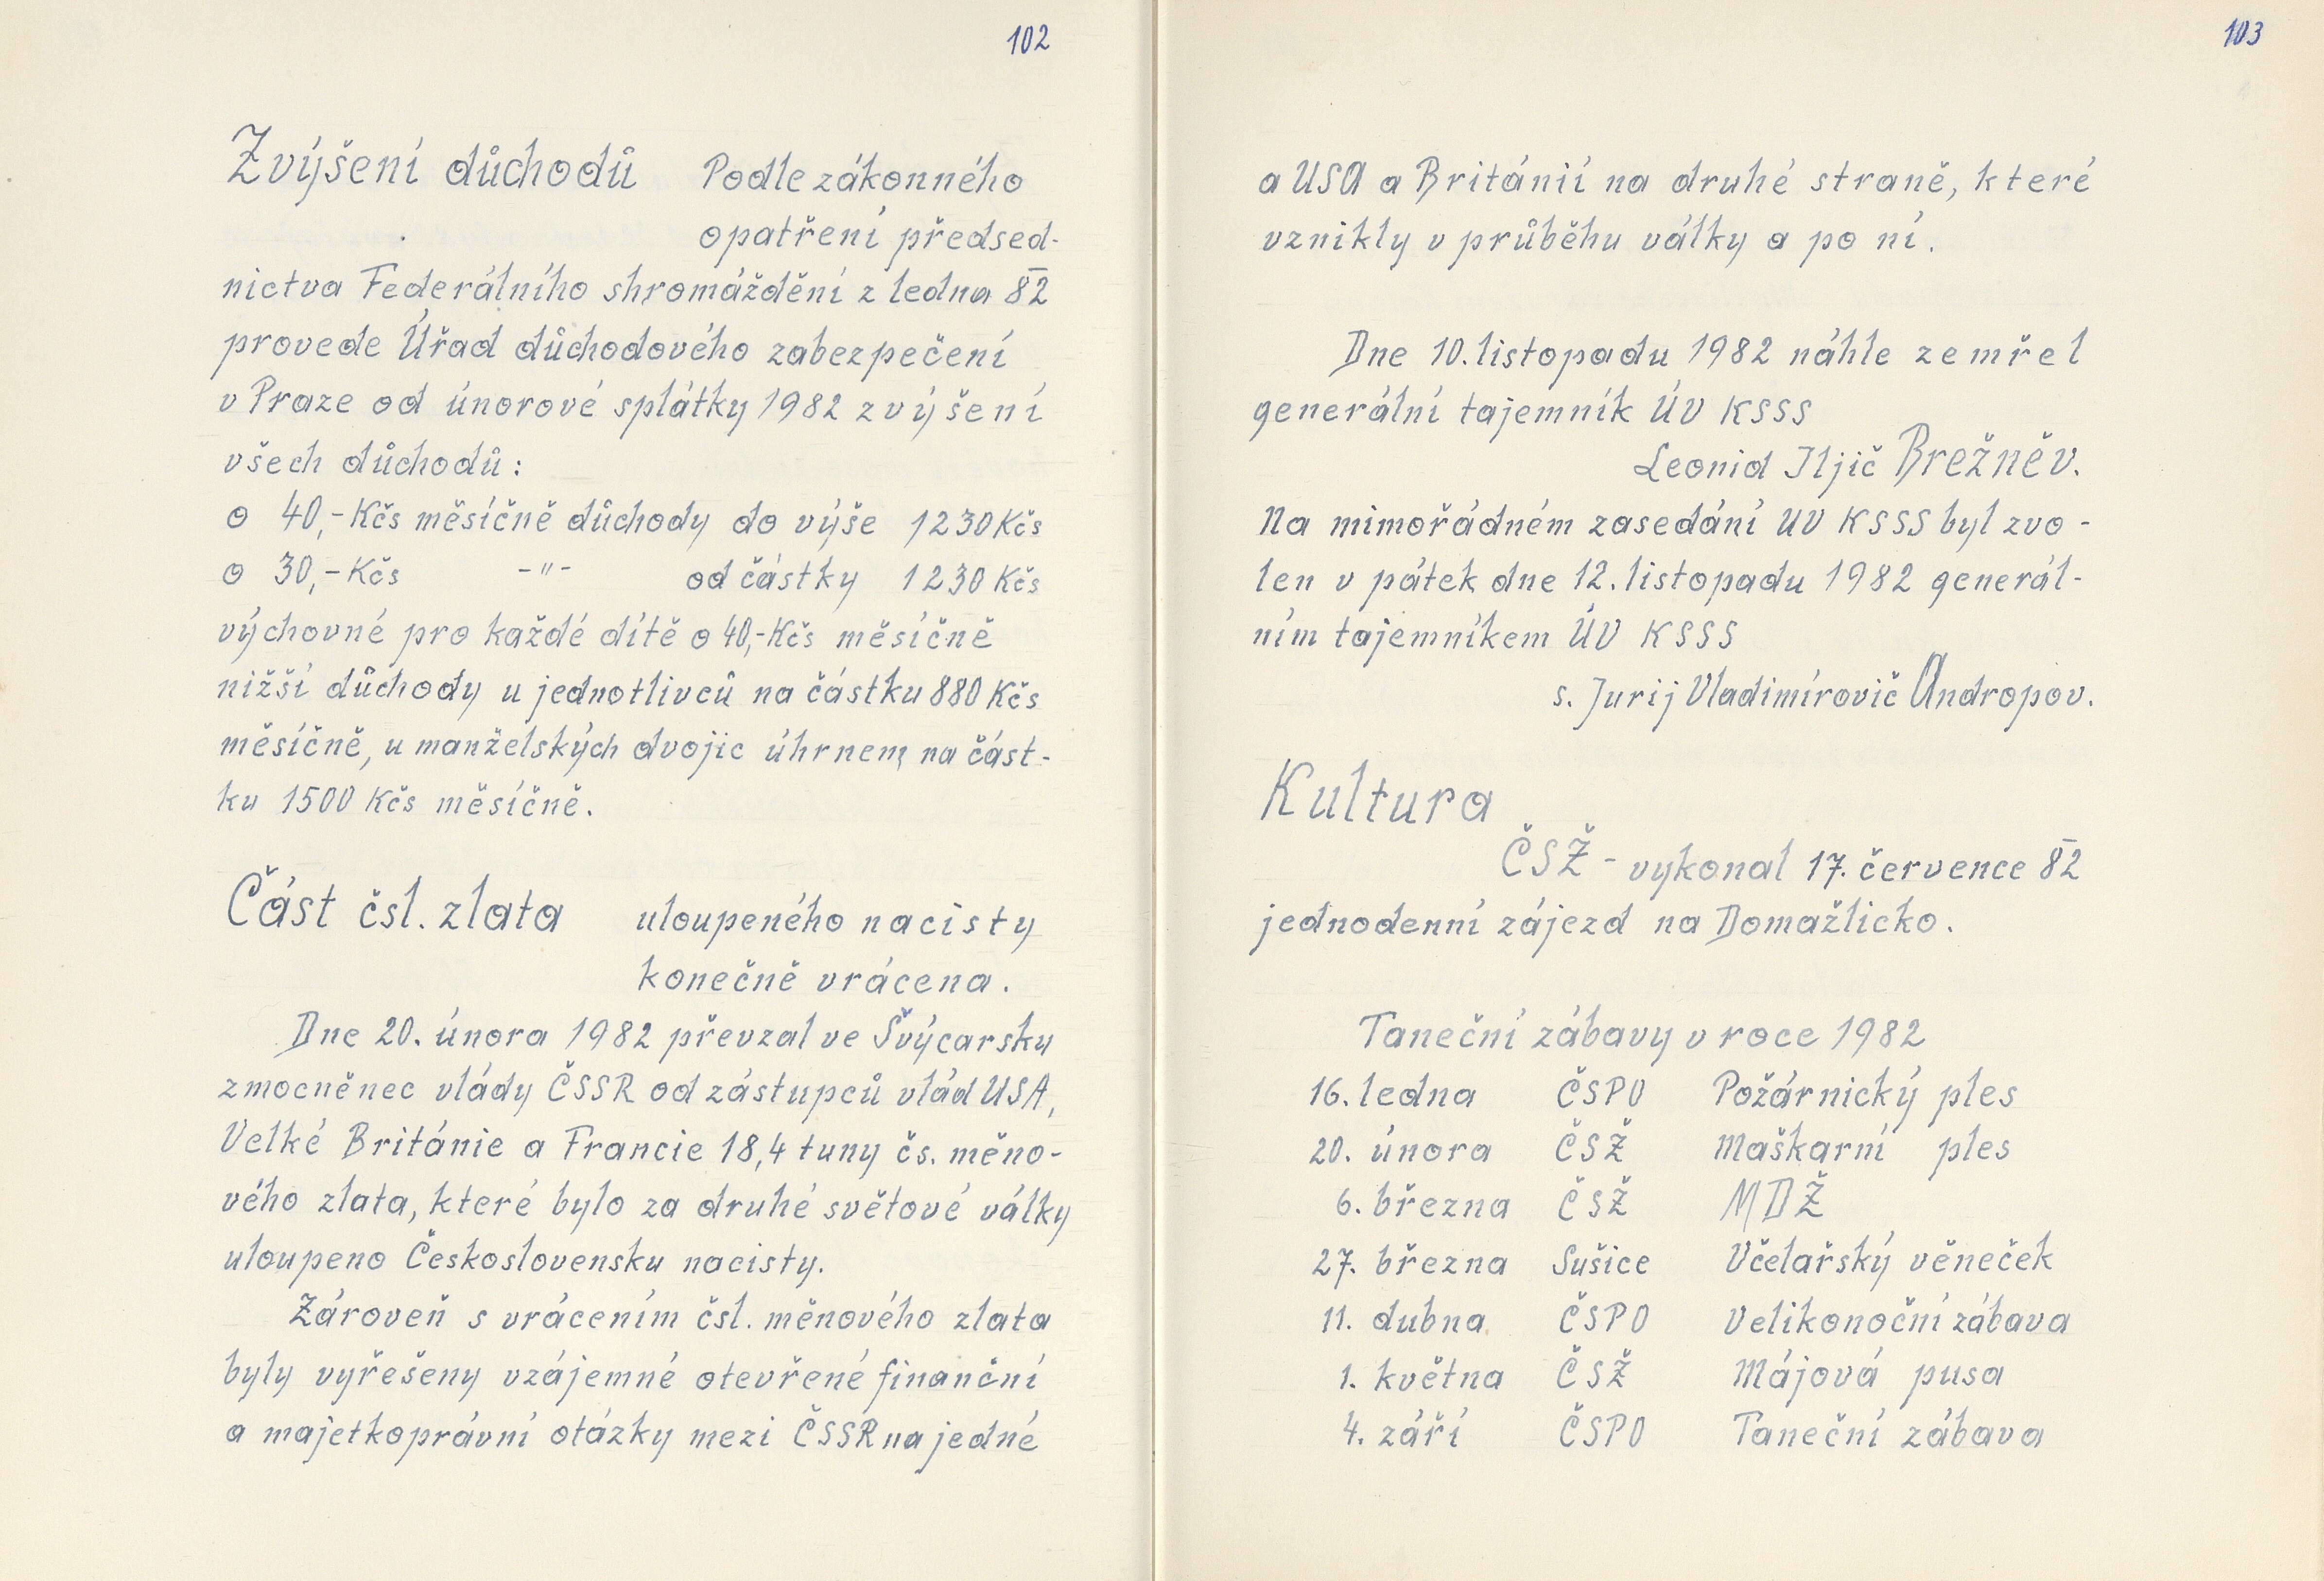 102
Zvýšení důchodů Podle zákonného
opatření předsed-
nictva Federálního shromáždění z ledna 82
provede Úřad důchodového zabezpečení
v Praze od únorové splátky 1982 zvýšení
všech důchodů:
o 40,- Kčs měsíčně důchody do výše 1230 Kčs
o 30,- Kčs -"- od částky 1230 Kčs
výchovné pro každé dítě o 40,- Kčs měsíčně
nižší důchody u jednotlivců na částku 880 Kčs
měsíčně, u manželských dvojic úhrnem na část-
ku 1500 Kčs měsíčně.
Část čsl. zlata uloupeného nacisty
konečně vrácena.
Dne 20. února 1982 převzal ve Švýcarsku
zmocněnec vlády ČSSR od zástupců vlád USA,
Velké Británie a Francie 18,4 tuny čs. měno-
vého zlata, které bylo za druhé světové války
uloupeno Československu nacisty.
Zároveň s vrácením čsl. měnového zlata
byly vyřešeny vzájemné otevřené finanční
a majetkoprávní otázky mezi ČSSR na jedné
103
a USA a Británií na druhé straně, které
vznikly v průběhu války a po ní.
Dne 10. listopadu 1982 náhle zemřel
generální tajemník ÚV KSSS
Leonid Iljič Brežněv.
Na mimořádném zasedání UV KSSS byl zvo-
len v pátek dne 12. listopadu 1982 generál-
ním tajemníkem ÚV KSSS
s. Jurij Vladimírovič Andropov.
Kultura
ČSŽ - vykonal 17. července 82
jednodenní zájezd na Domažlicko.
Taneční zábavy v roce 1982
16. ledna ČSPO Požárnický ples
20. února ČSŽ Maškarní ples
6. března ČSŽ MDŽ
27. března Sušice Včelařský věneček
11. dubna ČSPO Velikonoční zábava
1. května ČSŽ Májová pusa
4. září ČSPO Taneční zábava